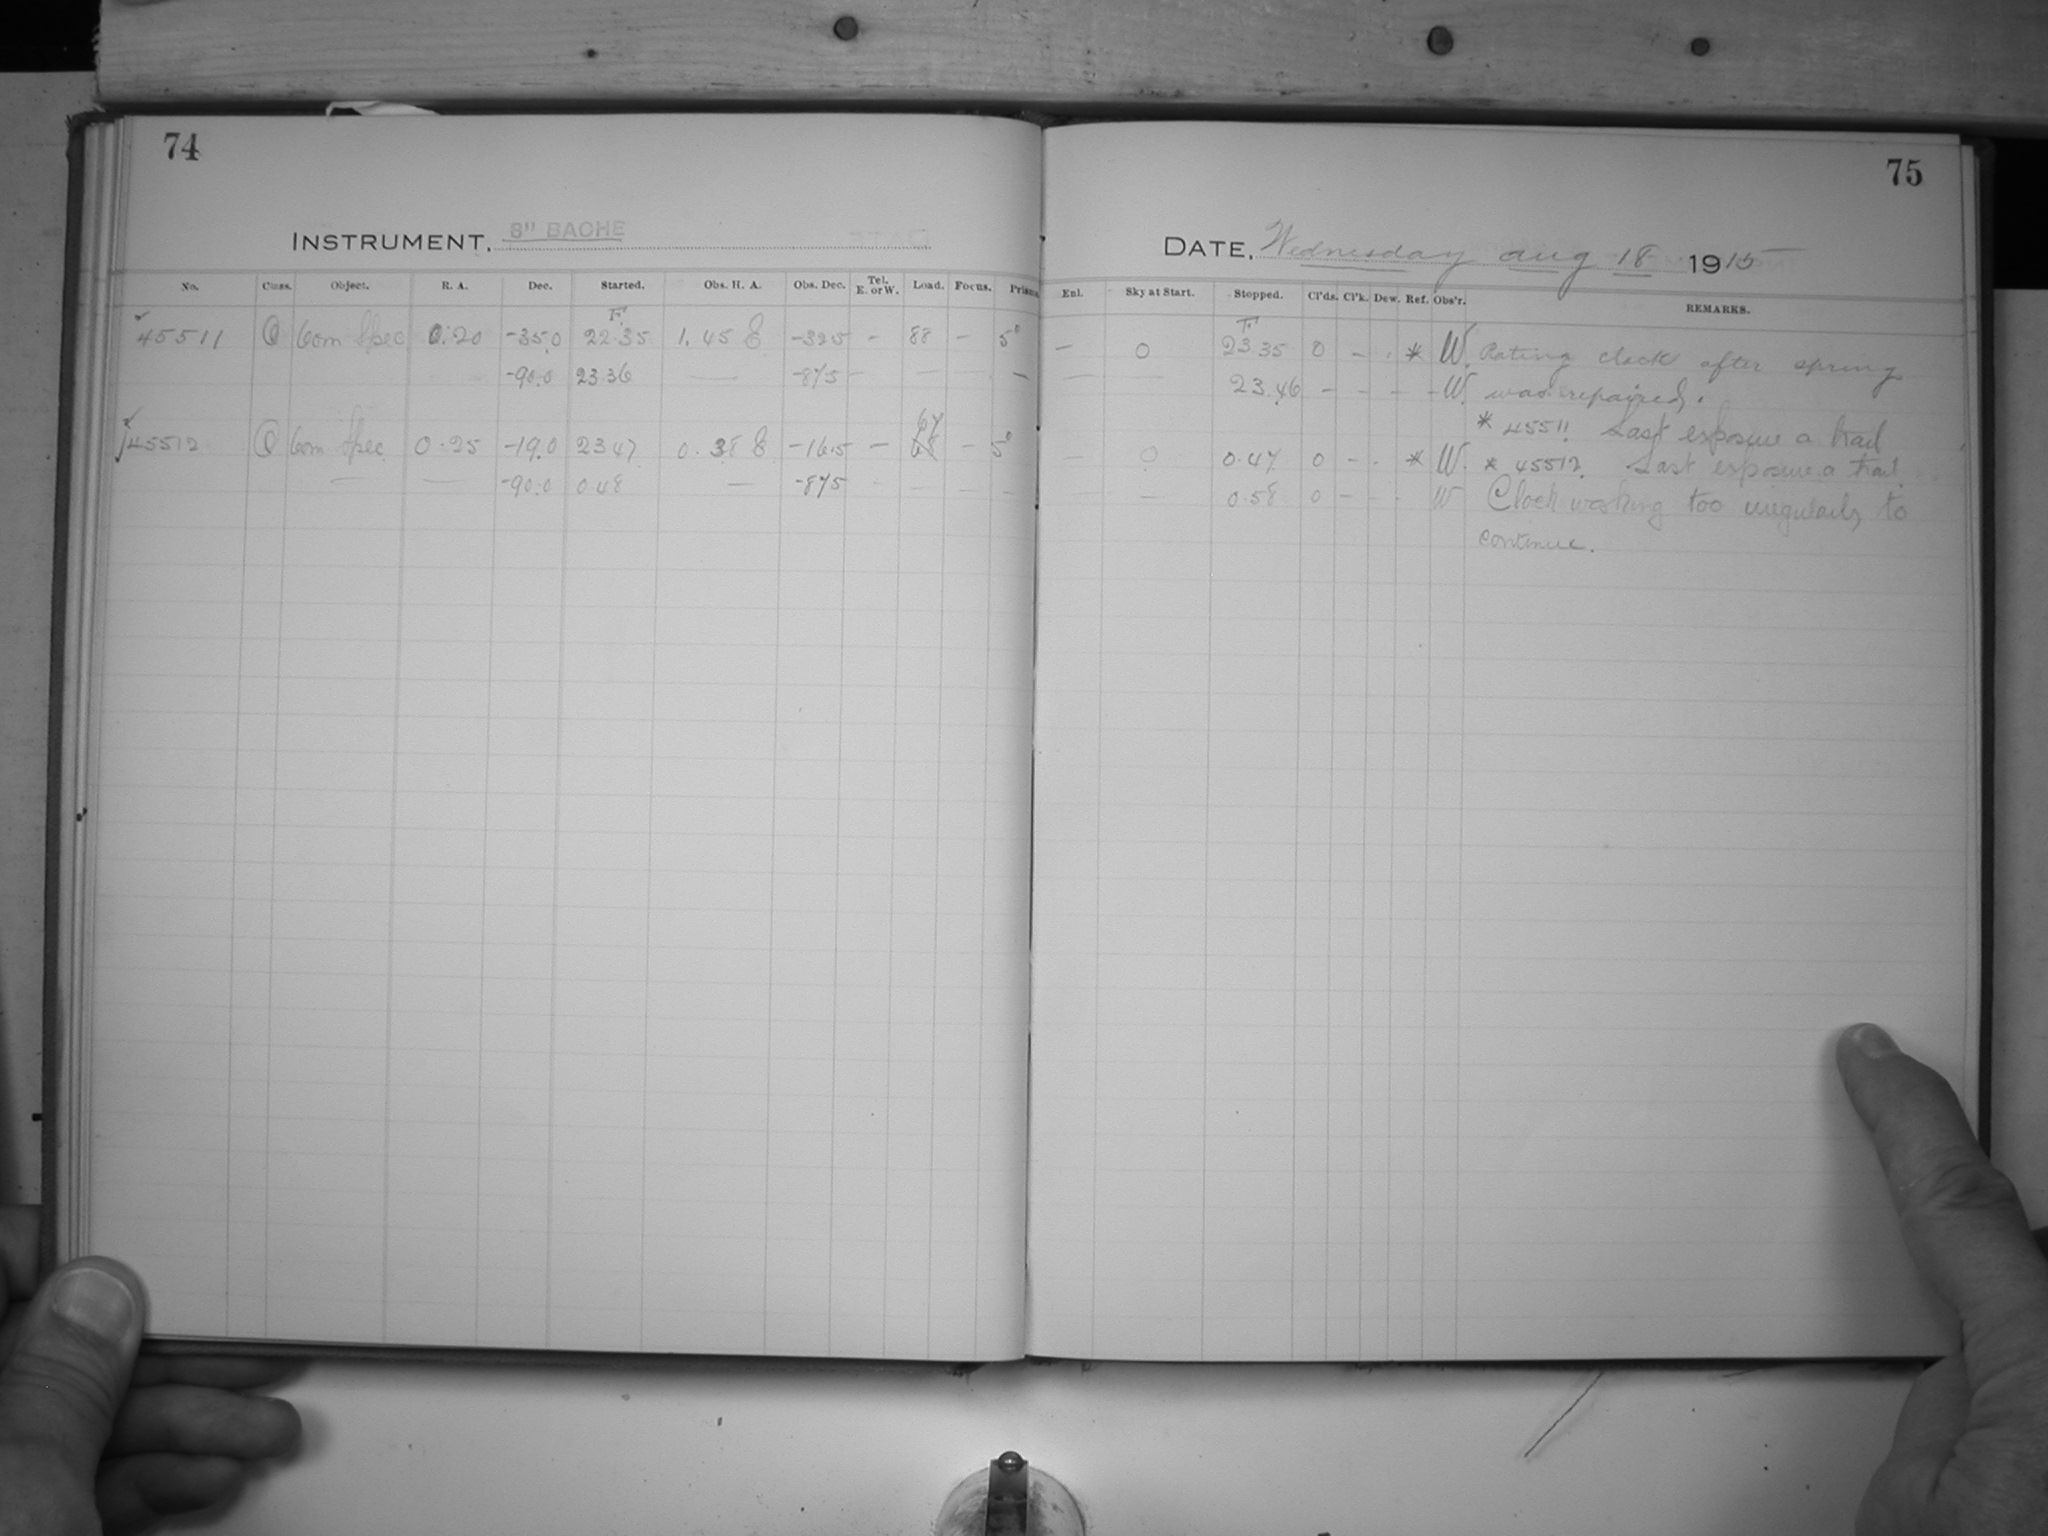 74
INSTRUMENT, 8" BACHE
No. Class. Object. R. A. Dec. Started. Obs. H. A. Obs. Dec. Tel. E. or W. Load. Focus. Prism
F.
45511 Q Com Spec 0.20 -35.0 22.35 1.45 E -32.5 - 88 - 5°
-90.0 23.36 — -87.5 - — - —
67
45512 Q Com Spec 0.25 -19.0 23 47 0.38 E -16.5 - 68 - 5°
— — -90.0 0.48 — -87.5 - - - -
75
DATE, Wednesday Aug 18 1915
Enl. Sky at Start. Stopped. Cl'ds. Cl'k. Dew. Ref. Obs'r. REMARKS.
F.
— 0 23.35 0 - . * W. Rating clock after spring
— — 23.46 - - - - W. was repaired.
* 45511 Last exposure a trail
— 0 0.47 0 - . * W. * 45512. Last exposure a trail.
— — 0.58 0 - - . W Clock working too irregularly to
continue.